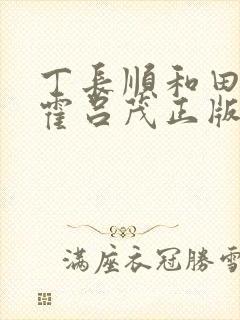 丁長順和田
霍呂茂正版
滿座衣冠勝雪